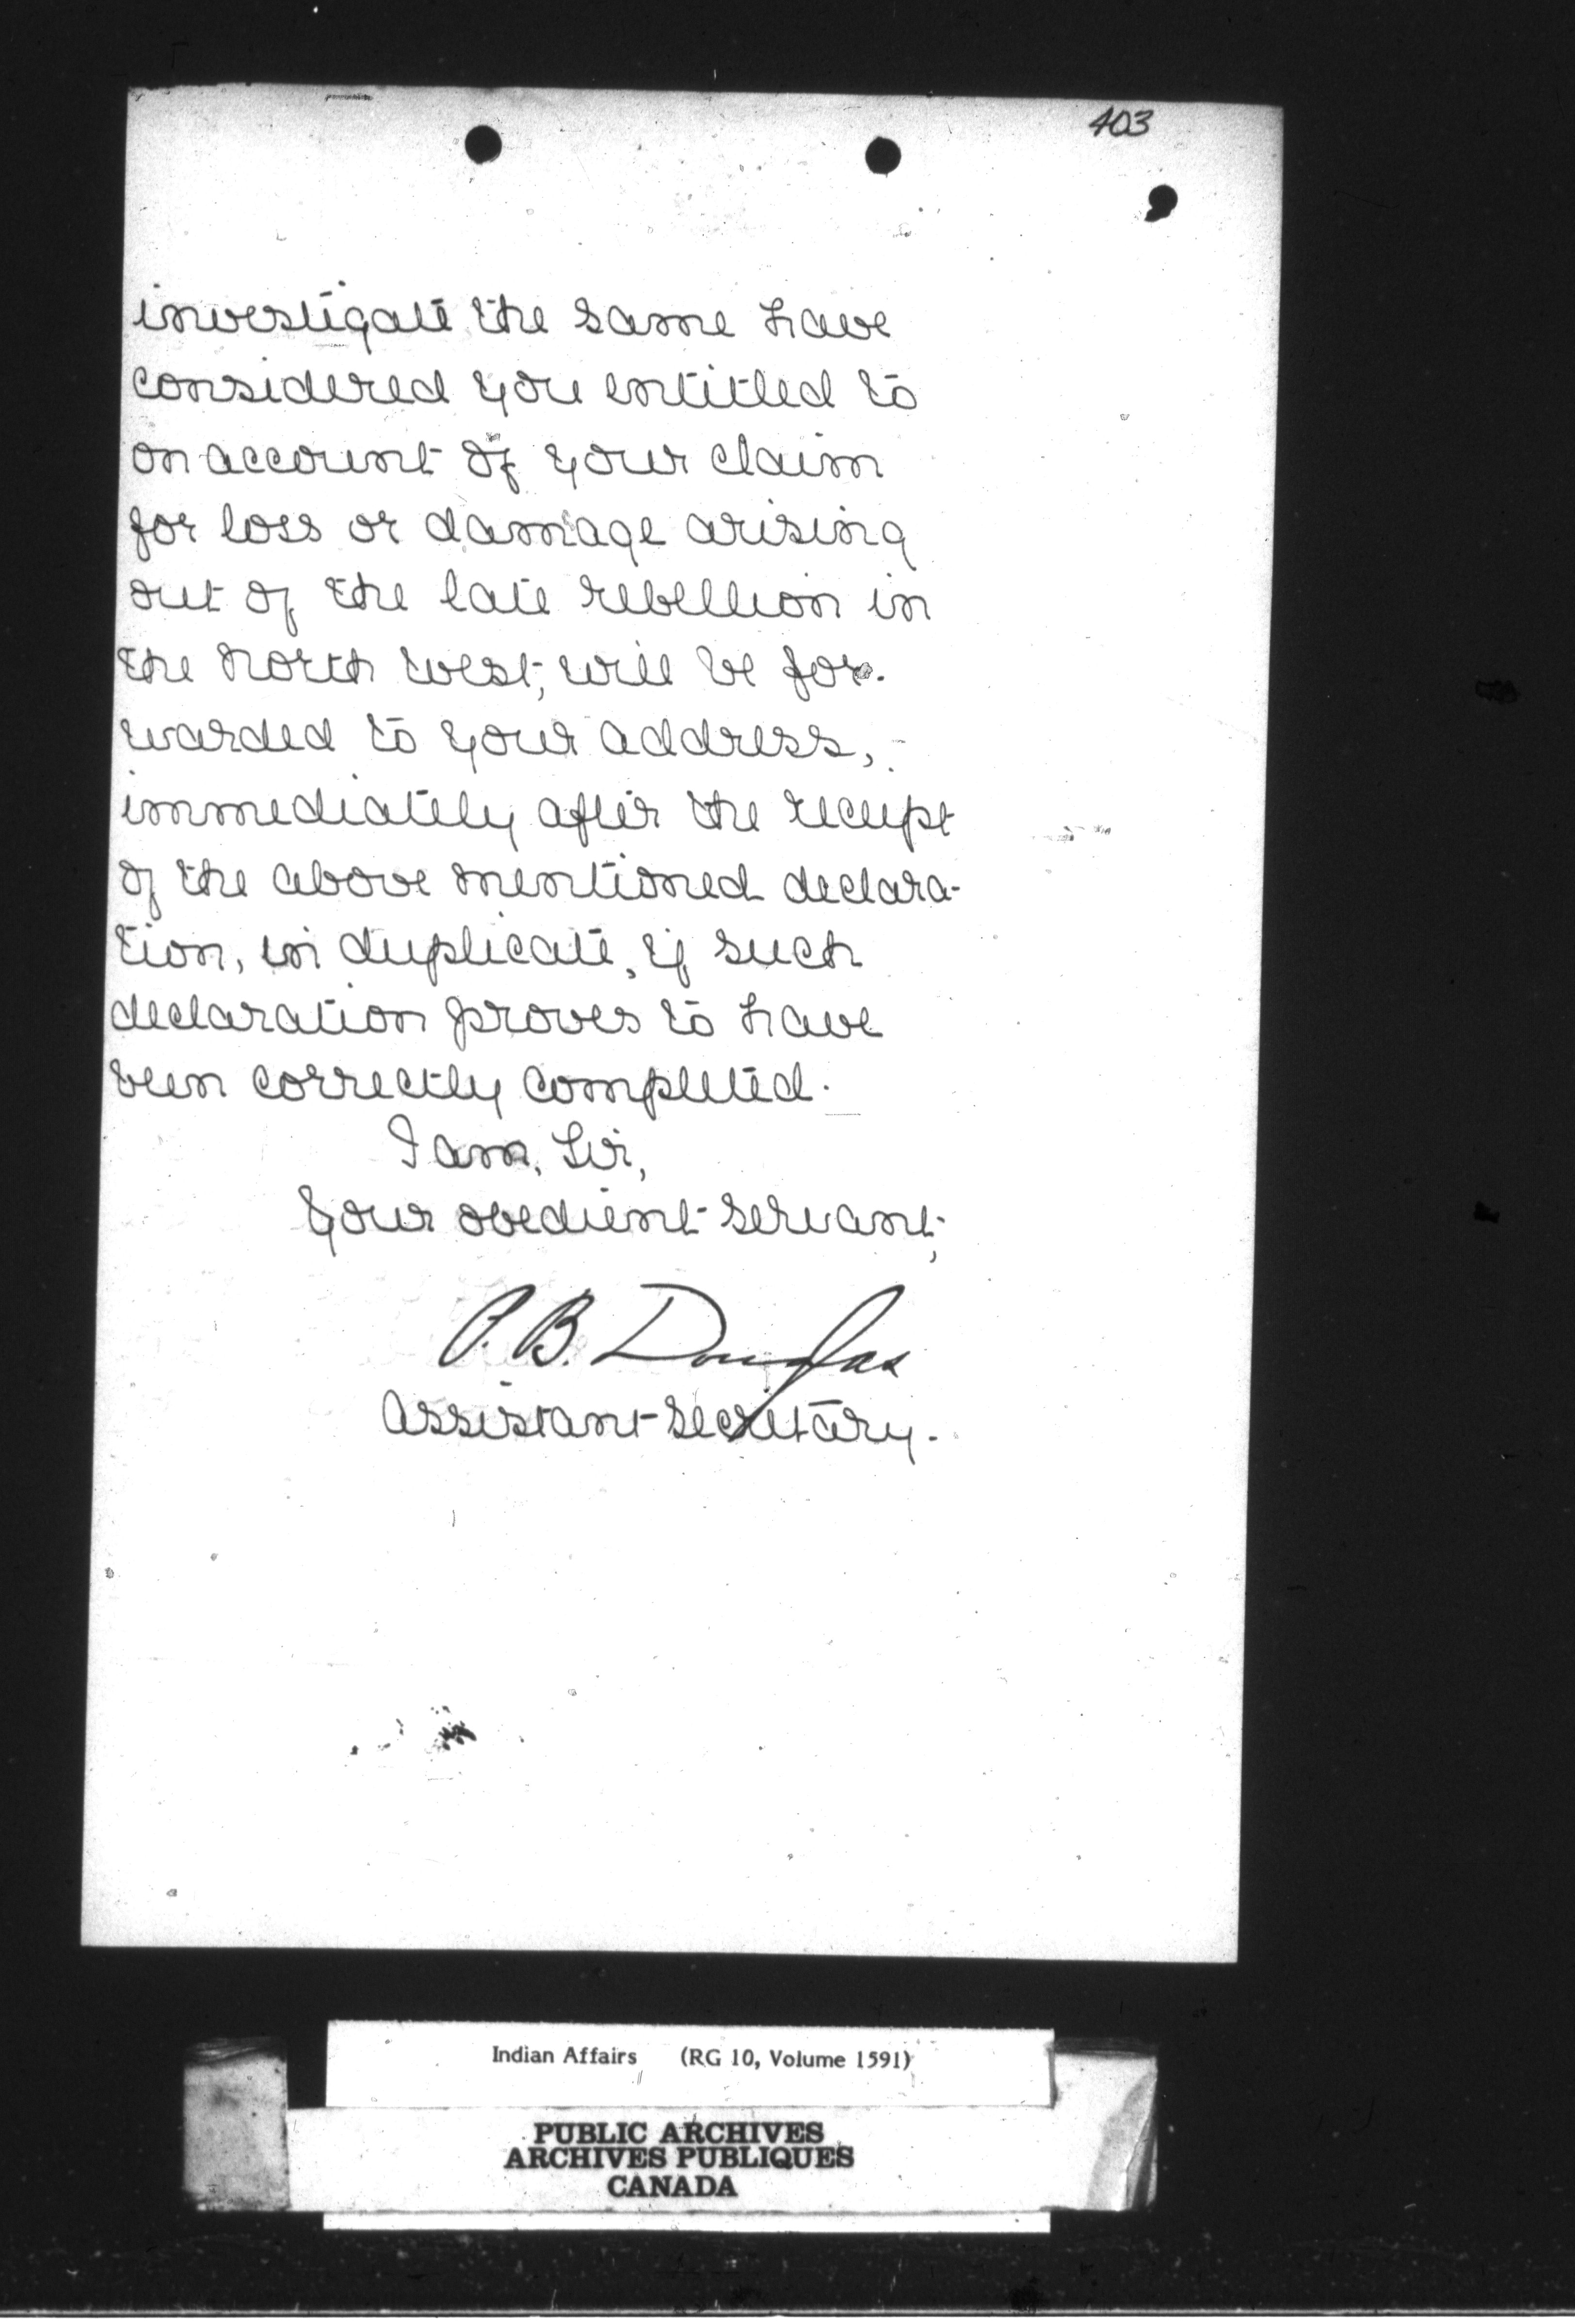 403
investigate the same have
considered you entitled to
on account of your claim
for loss or damage arising
out of the late rebellion in
the North West, will be for-
warded to your address,-
immediately after the receipt
of the above mentioned declara-
tion, in duplicate, if such
declaration proves to have
been correctly completed.
I am, Sir,
Your obedient servant,
P. B. Douglas
Assistant Secretary.
Indian Affairs (RG 10, Volume 1591)
PUBLIC ARCHIVES
ARCHIVES PUBLIQUES
CANADA